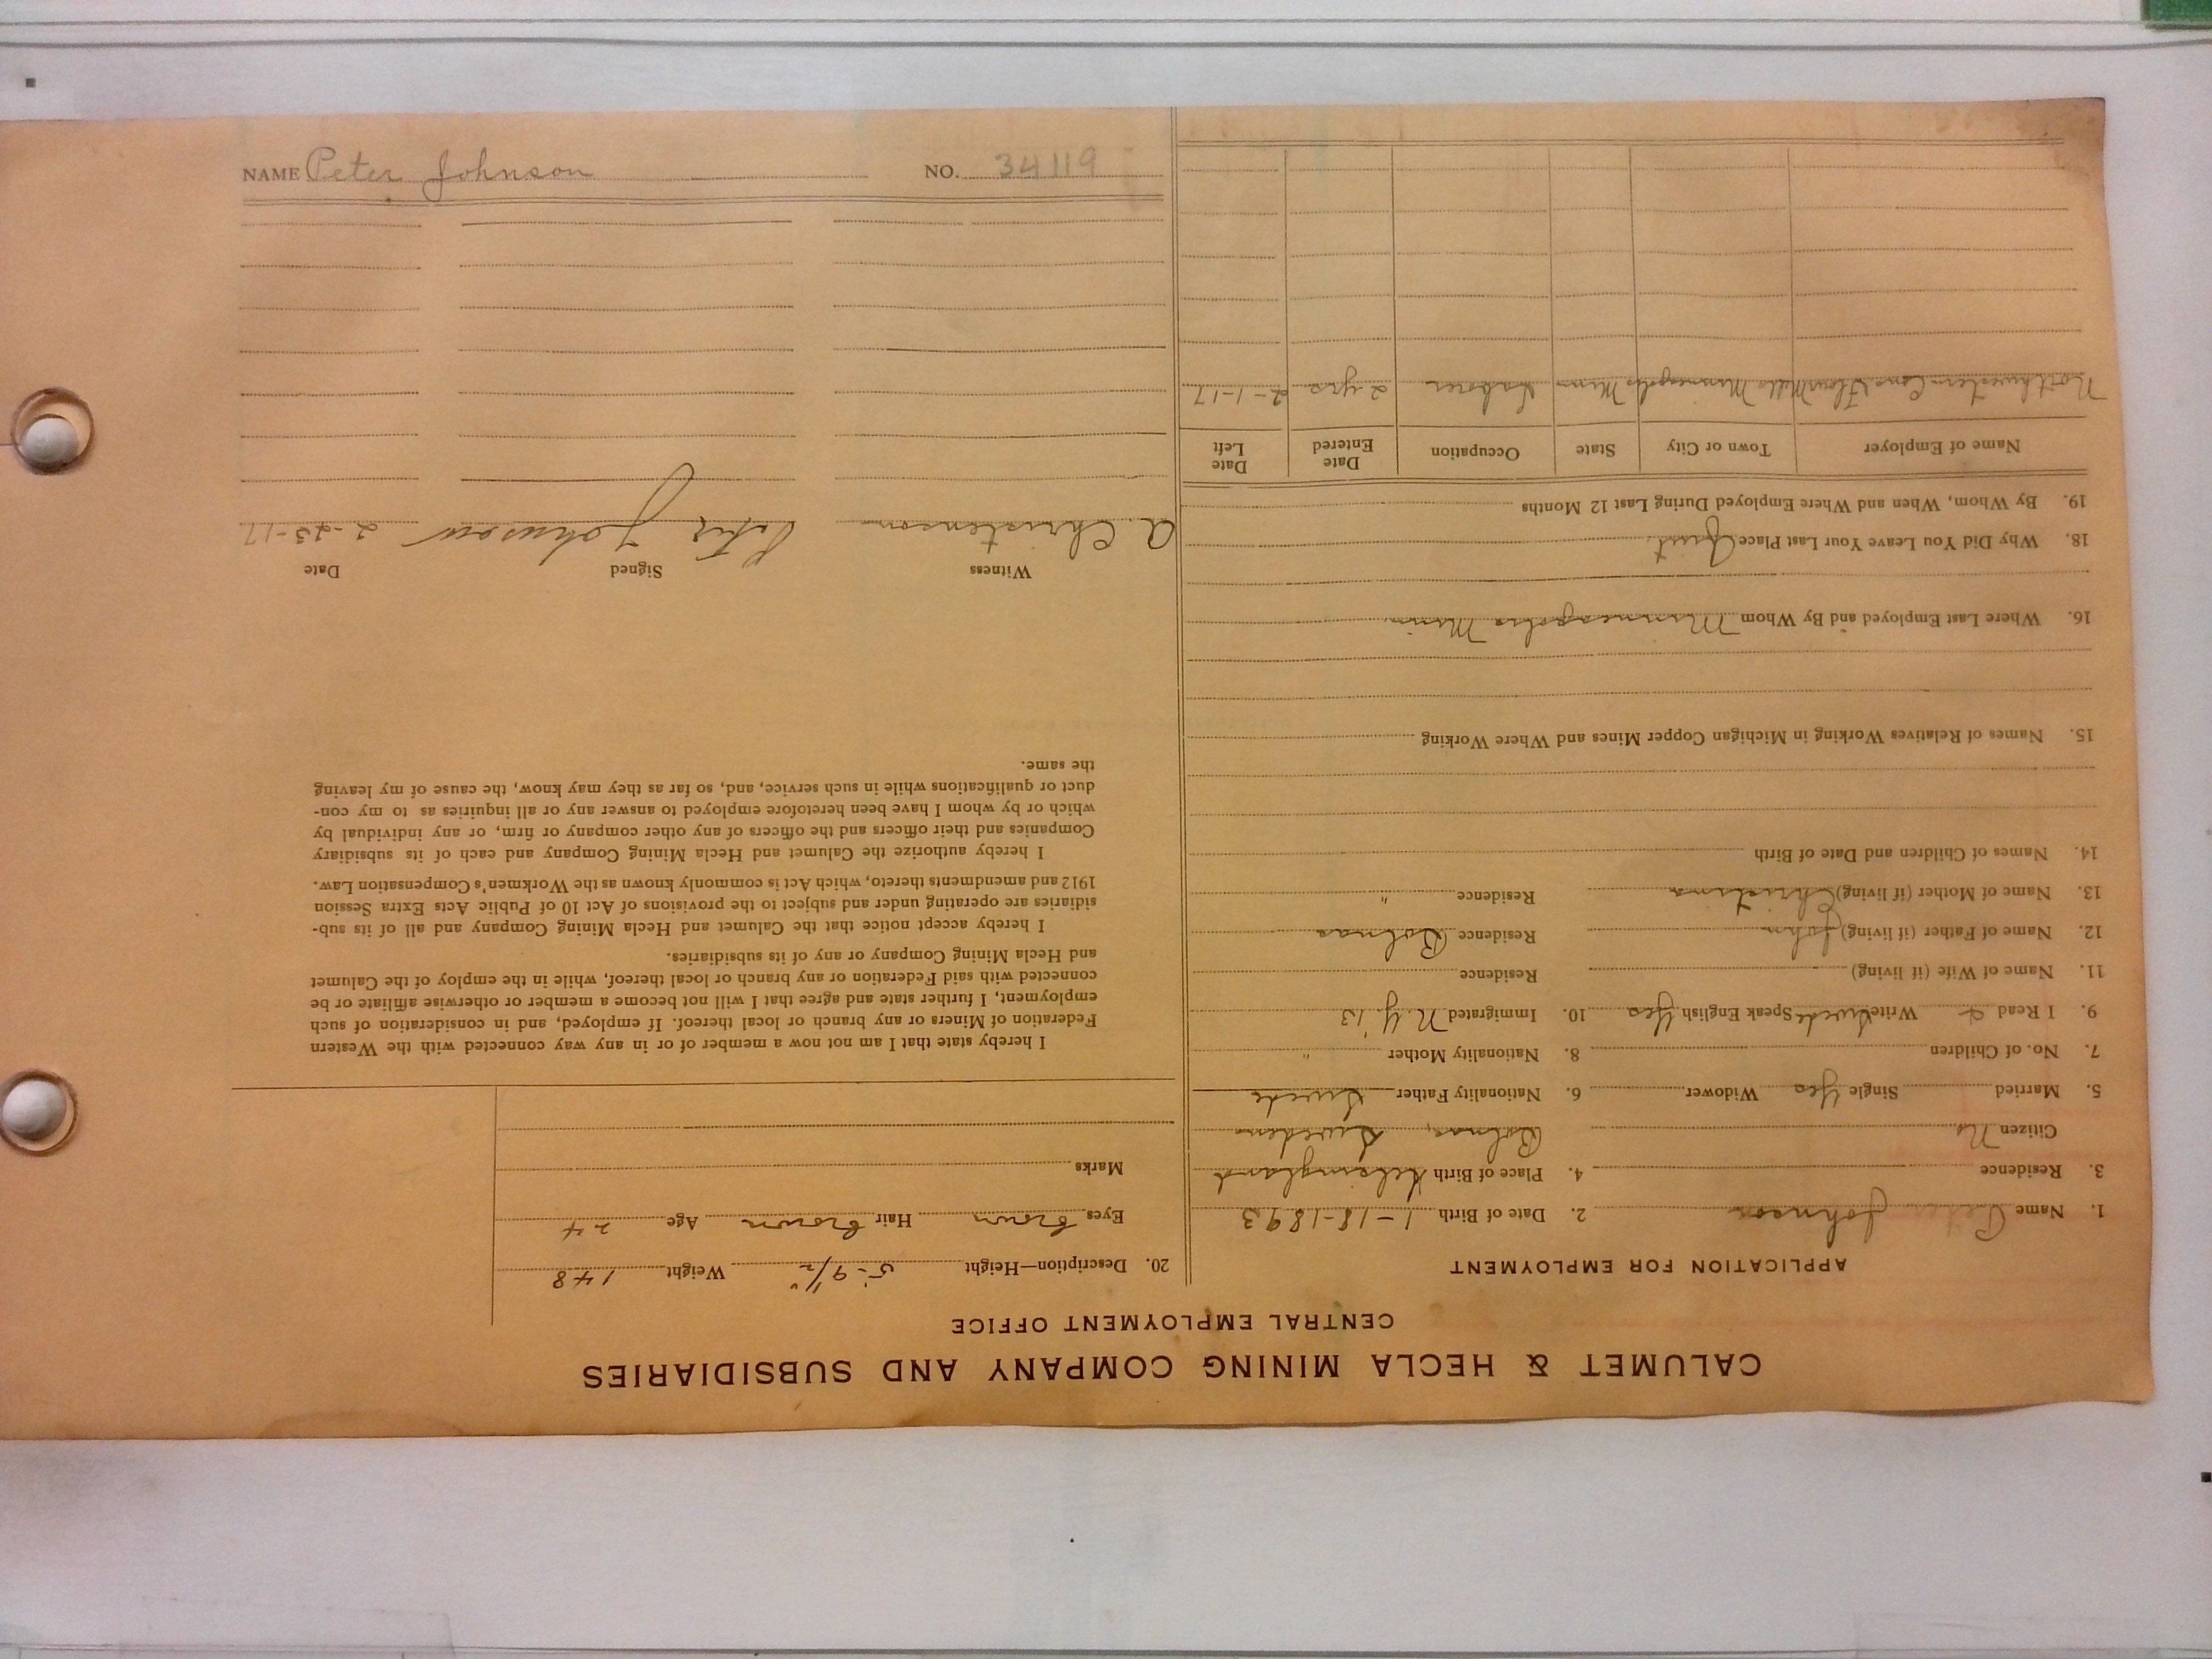 CALUMET & HECLA MINING COMPANY AND SUBSIDIARIES
CENTRAL EMPLOYMENT OFFICE
APPLICATION FOR EMPLOYMENT
1. Name Peter Johnson 2. Date of Birth 1-18-1893
3. Residence 4. Place of Birth Helsingland
Citizen No Bolnas, Sweden
5. Married Single Yes Widower 6. Nationality Father Swede
7. No. of Children 8. Nationality Mother "
9. I Read & Write Swede Speak English Yes 10. Immigrated N.Y. '13
11. Name of Wife (if living) Residence
12. Name of Father (if living) John Residence Bolnas
13. Name of Mother (if living) Christina Residence "
14. Names of Children and Date of Birth
15. Names of Relatives Working in Michigan Copper Mines and Where Working
16. Where Last Employed and By Whom Minneapolis Minn
18. Why Did You Leave Your Last Place Quit
19. By Whom, When and Where Employed During Last 12 Months
Name of Employer Town or City State Occupation Date Entered Date Left
Northwestern Cons Flour Mills Minneapolis Minn Laborer 2 yrs 2-1-17
20. Description—Height 5'-9 1/2" Weight 148
Eyes brown Hair brown Age 24
Marks
I hereby state that I am not now a member of or in any way connected with the Western
Federation of Miners or any branch or local thereof. If employed, and in consideration of such
employment, I further state and agree that I will not become a member or otherwise affiliate or be
connected with said Federation or any branch or local thereof, while in the employ of the Calumet
and Hecla Mining Company or any of its subsidiaries.
I hereby accept notice that the Calumet and Hecla Mining Company and all of its sub-
sidiaries are operating under and subject to the provisions of Act 10 of Public Acts Extra Session
1912 and amendments thereto, which Act is commonly known as the Workmen's Compensation Law.
I hereby authorize the Calumet and Hecla Mining Company and each of its subsidiary
Companies and their officers and the officers of any other company or firm, or any individual by
which or by whom I have been heretofore employed to answer any or all inquiries as to my con-
duct or qualifications while in such service, and, so far as they may know, the cause of my leaving
the same.
Witness Signed Date
A. Christenson Peter Johnson 2-23-17
NAME Peter Johnson NO. 34119